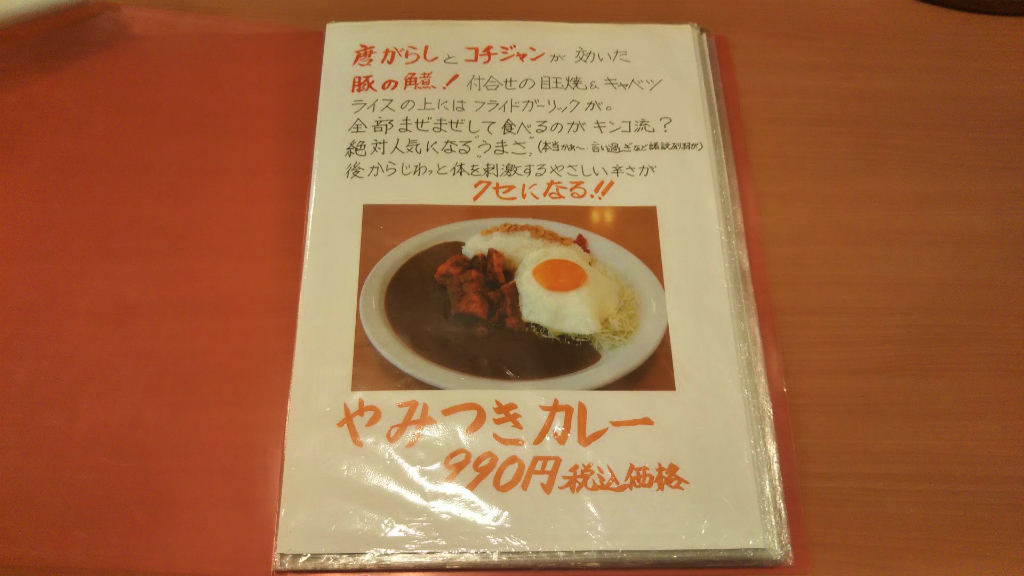 唐がらしとコチジャンが効いた
豚の角煮! 付合せの目玉焼&キャベツ
ライスの上にはフライドガーリックが。
全部まぜまぜして食べるのがキンコ流?
絶対人気になるうまさ(本当かぁ〜言い過ぎなど諸説
後からじわっと体を刺激するやさしい辛さが
クセになる!!
やみつきカレー
990円税込価格